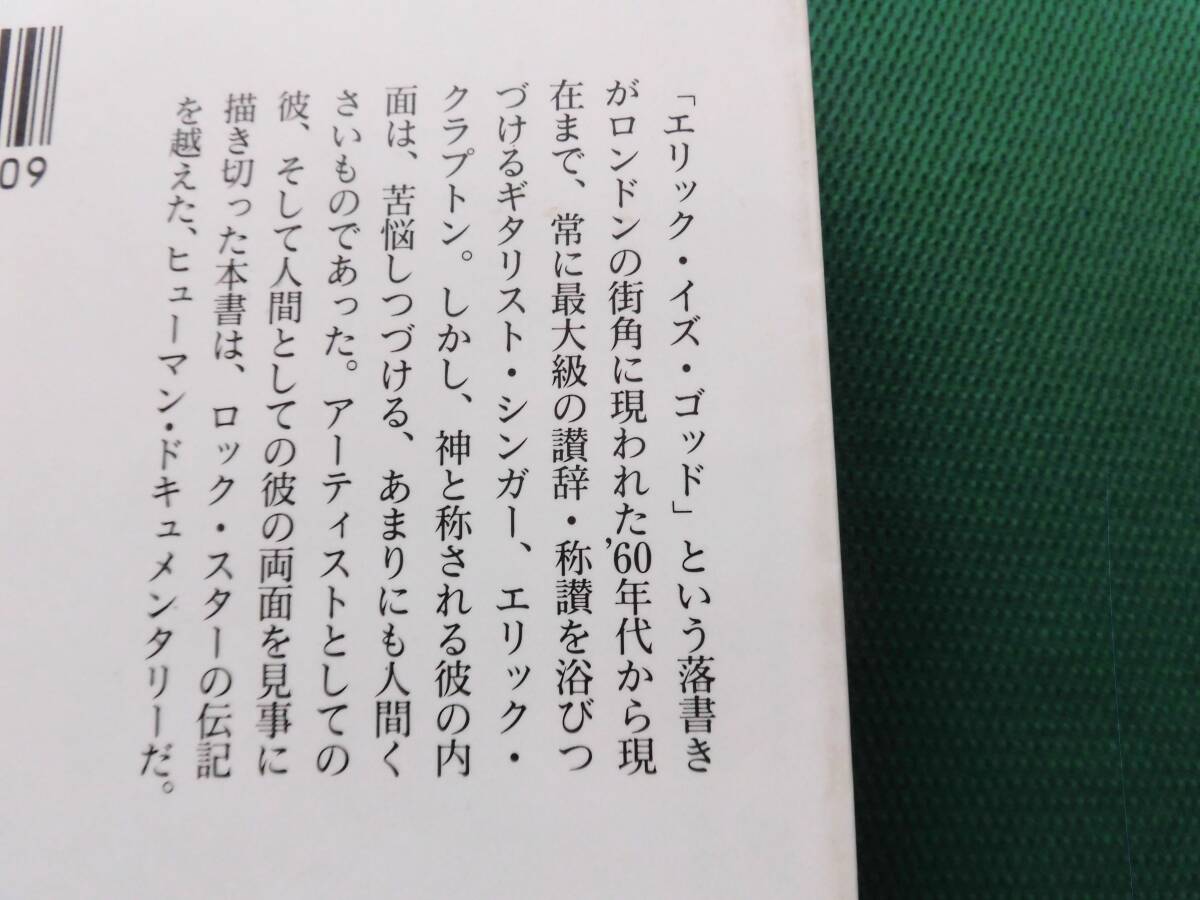 「エリック・イズ・ゴッド」という落書き
がロンドンの街角に現われた’60年代から現
在まで、常に最大級の讃辞・称讃を浴びつ
づけるギタリスト・シンガー、エリック・
クラプトン。しかし、神と称される彼の内
面は、苦悩しつづける、あまりにも人間く
さいものであった。アーティストとしての
彼、そして人間としての彼の両面を見事に
描き切った本書は、ロック・スターの伝記
を越えた、ヒューマン・ドキュメンタリーだ。
09